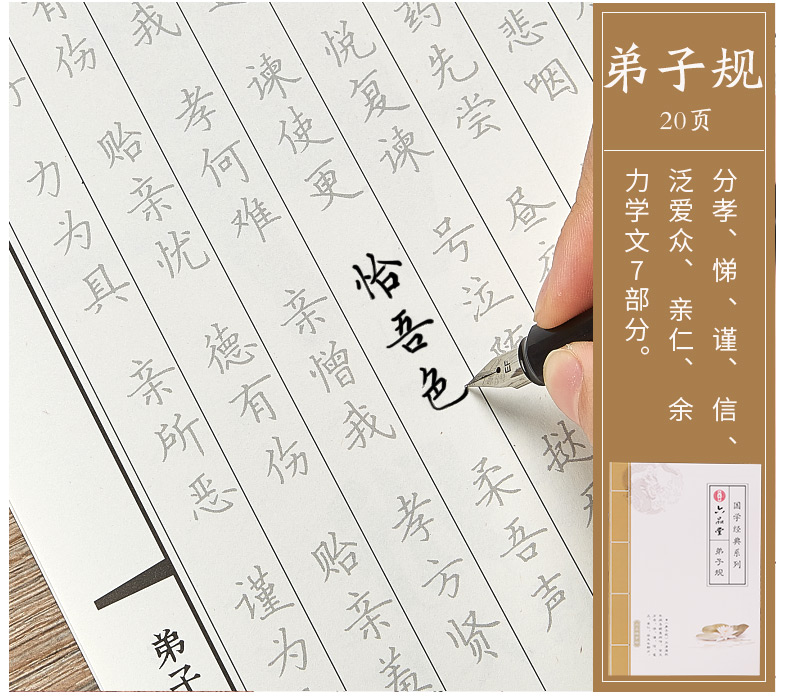 弟子规
20页
分孝、悌、谨、信、
泛爱众、亲仁、余
力学文7部分。
悲咽
药先尝 昼
悦复谏 号泣 挞
谏使更 怡吾色 柔吾声
我 孝何难 亲憎我 孝方贤
有伤 贻亲忧 德有伤 贻亲羞
力为具 亲所恶 谨为
弟子
EF
国学经典系列
六品堂 弟子规